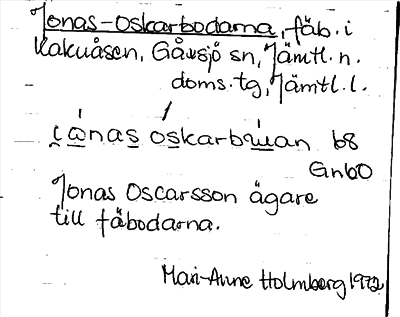 Jonas-Oskarbodarna, fäb. i
Kakuåsen, Gåxsjö sn, Jämtl. n.
doms. tg, Jämtl. l.
68
Gnb0
Jonas Oscarsson ägare
till fäbodarna.
Mari-Anne Holmberg 1972